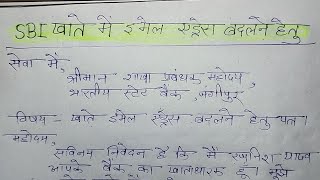 SBI खाते में ईमेल एड्रेस बदलने हेतु
सेवा में,
श्रीमान शाखा प्रबंधक महोदय,
भारतीय स्टेट बैंक,
विषय - खाते ईमेल एड्रेस बदलने हेतु पत्र
महोदय,
सविनय निवेदन है कि मैं
आपके बैंक का खाताधारक हूँ। मुझे